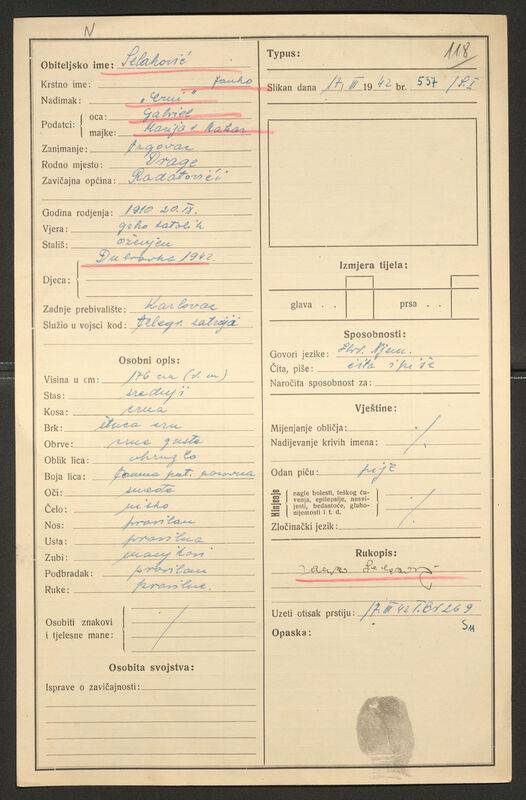 N
Obiteljsko ime: Selaković
Krstno ime: Janko
Nadimak: „Crni"
Podatci: oca: Gabriel
majke: Marija r. Makar
Zanimanje: trgovac
Rodno mjesto: Drage
Zavičajna općina: Radatovići
Godina rodjenja: 1910 20.IX.
Vjera: grko katolik
Stališ: oženjen
Dubravka 1942.
Djeca:
Zadnje prebivalište: Karlovac
Služio u vojsci kod: telegr. satnija
Osobni opis:
Visina u cm: 176 cm
Stas: srednji
Kosa: crna
Brk: štuca crn
Obrve: crne guste
Oblik lica: okruglo
Boja lica: tamna
Oči: smeđe
Čelo: nisko
Nos: pravilan
Usta: pravilna
Zubi: manjkavi
Podbradak: pravilan
Ruke: pravilne
Osobiti znakovi
i tjelesne mane: /
Osobita svojstva:
Isprave o zavičajnosti:
Typus: 118
Slikan dana 17 III 1942 br. 537 /S.I
Izmjera tijela:
glava . . prsa . .
Sposobnosti:
Govori jezike: Hrv. Njem.
Čita, piše: čita i piše
Naročita sposobnost za:
Vještine:
Mijenjanje obličja:
Nadijevanje krivih imena: /
Odan piću: pije
Hinjenje nagle bolesti, teškog ću-
venja, epilepsije, nesvi-
jesti, bedastoće, gluho-
nijemosti i t. d. /
Zločinački jezik:
Rukopis:
Uzeti otisak prstiju: 17. III 42 T.Br 269
Opaska: